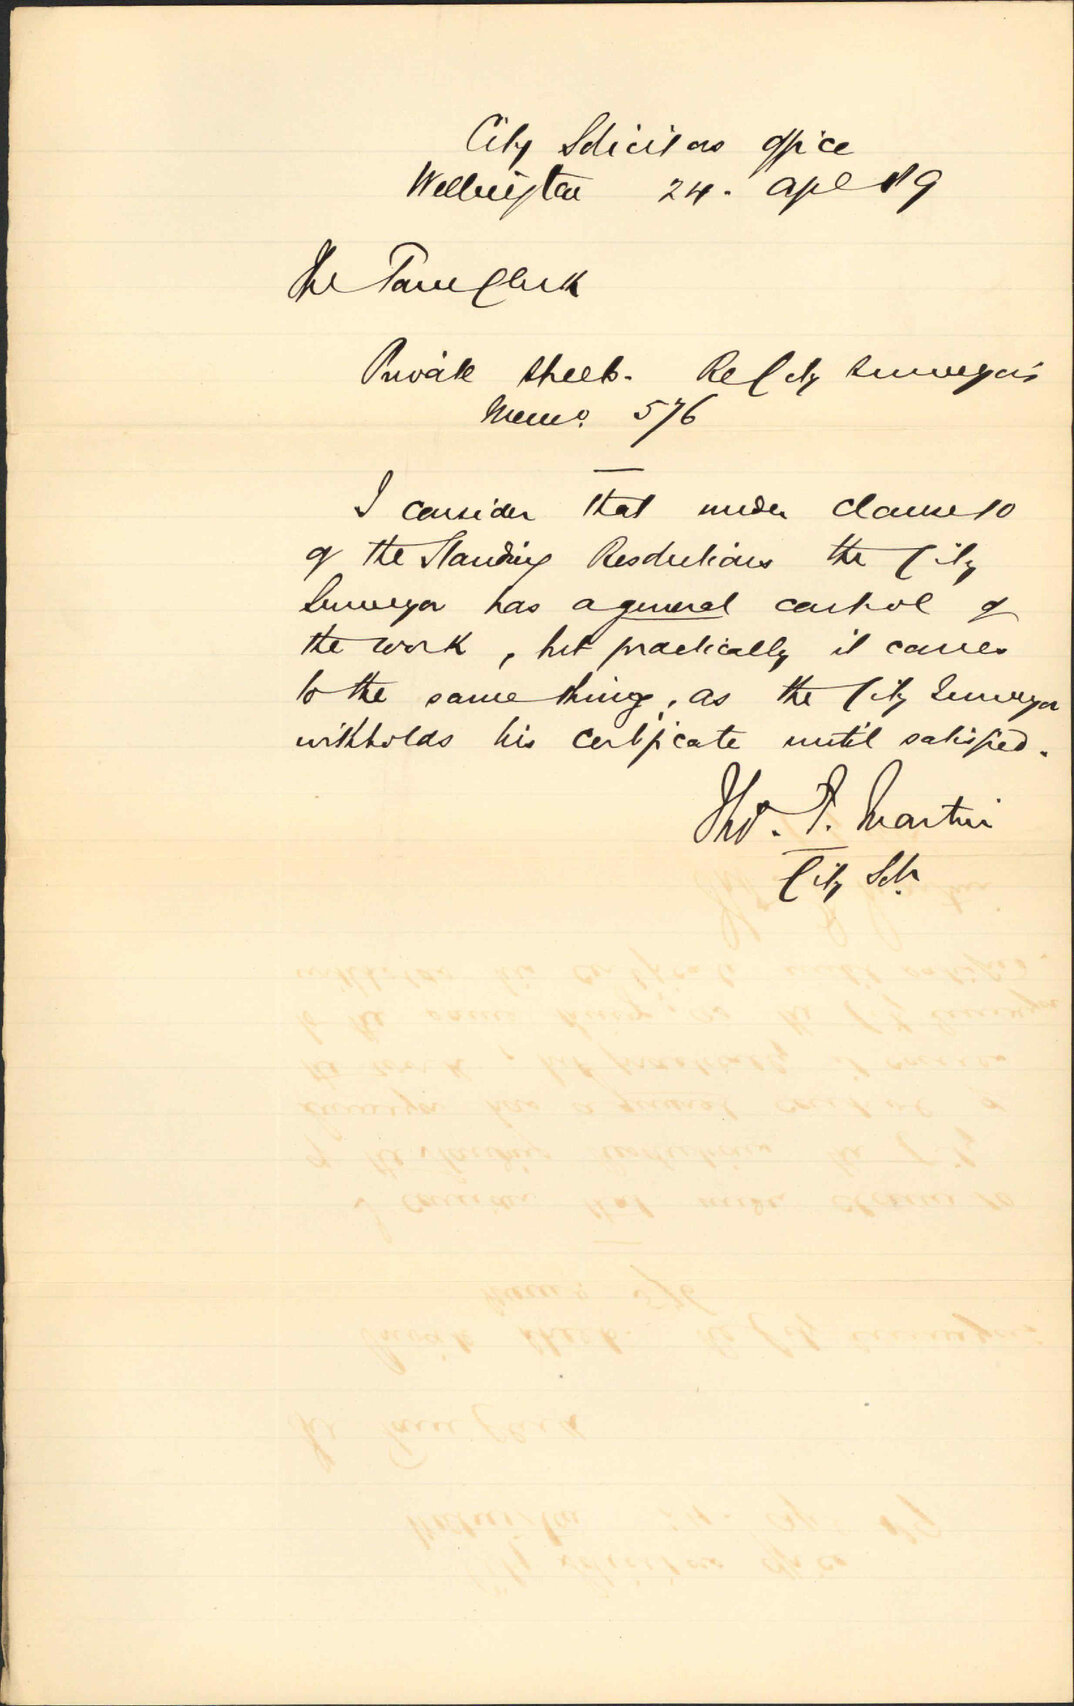 City Solicitors Office
Wellington 24. Apl 89
The Town Clerk
Private Streets. Re City Surveyor's
Memo. 576
I consider that under clause 10
of the Standing Resolutions the City
Surveyor has a general control of
the work, but practically it comes
to the same thing, as the City Surveyor
withholds his certificate until satisfied.
Tho. F. Martin
City Solr.